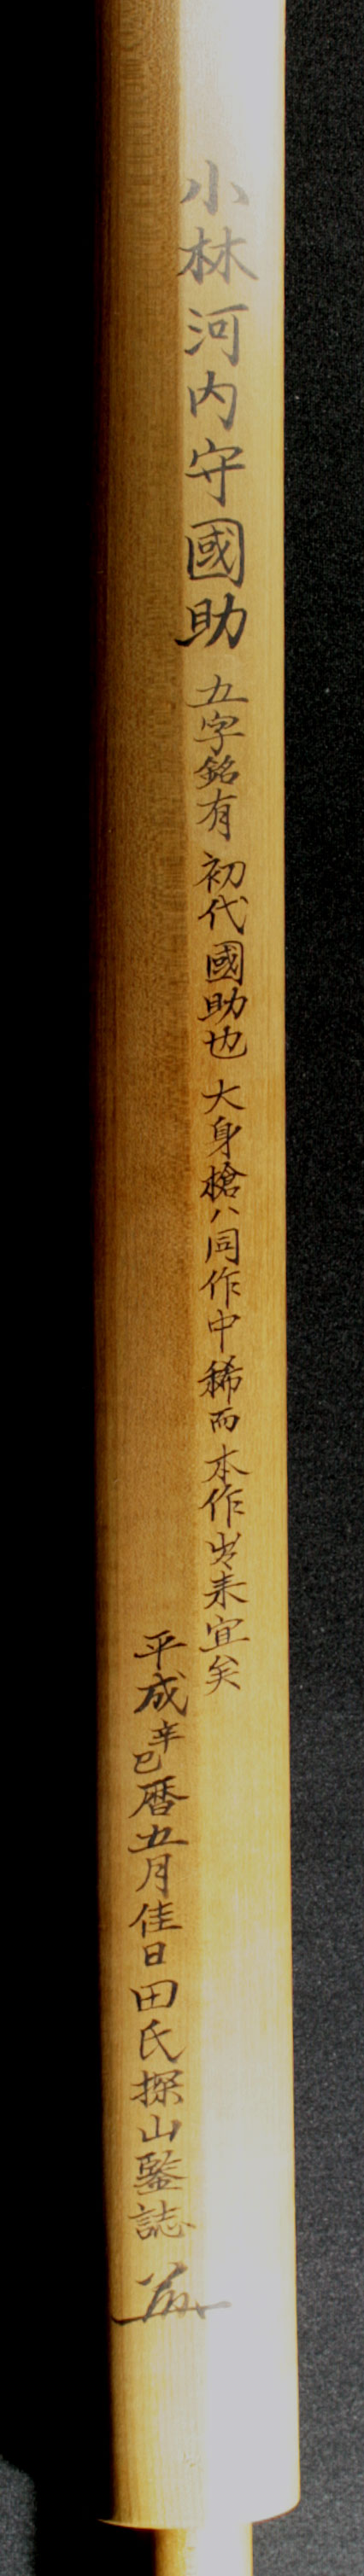 小林河内守國助 五字銘有 初代國助也 大身槍ハ同作中稀而 本作出来宜矣
平成辛巳暦五月佳日田氏探山鑒誌